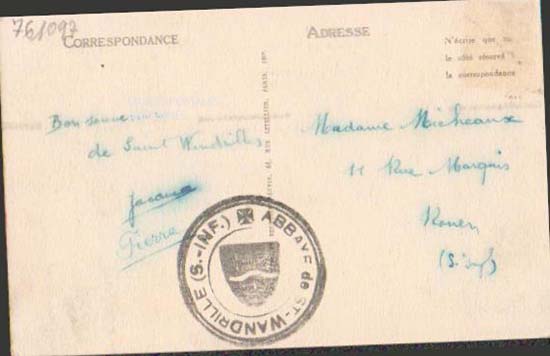 761097
CORRESPONDANCE
ADRESSE
N'écrire que
le côté réservé
la correspondance
Bon
de Saint Wandrille
Pierre
Madame Micheaux
11 Rue Marquis
Rouen
(S. Inf)
ABBAYE de ST-WANDRILLE (S.-INF.)